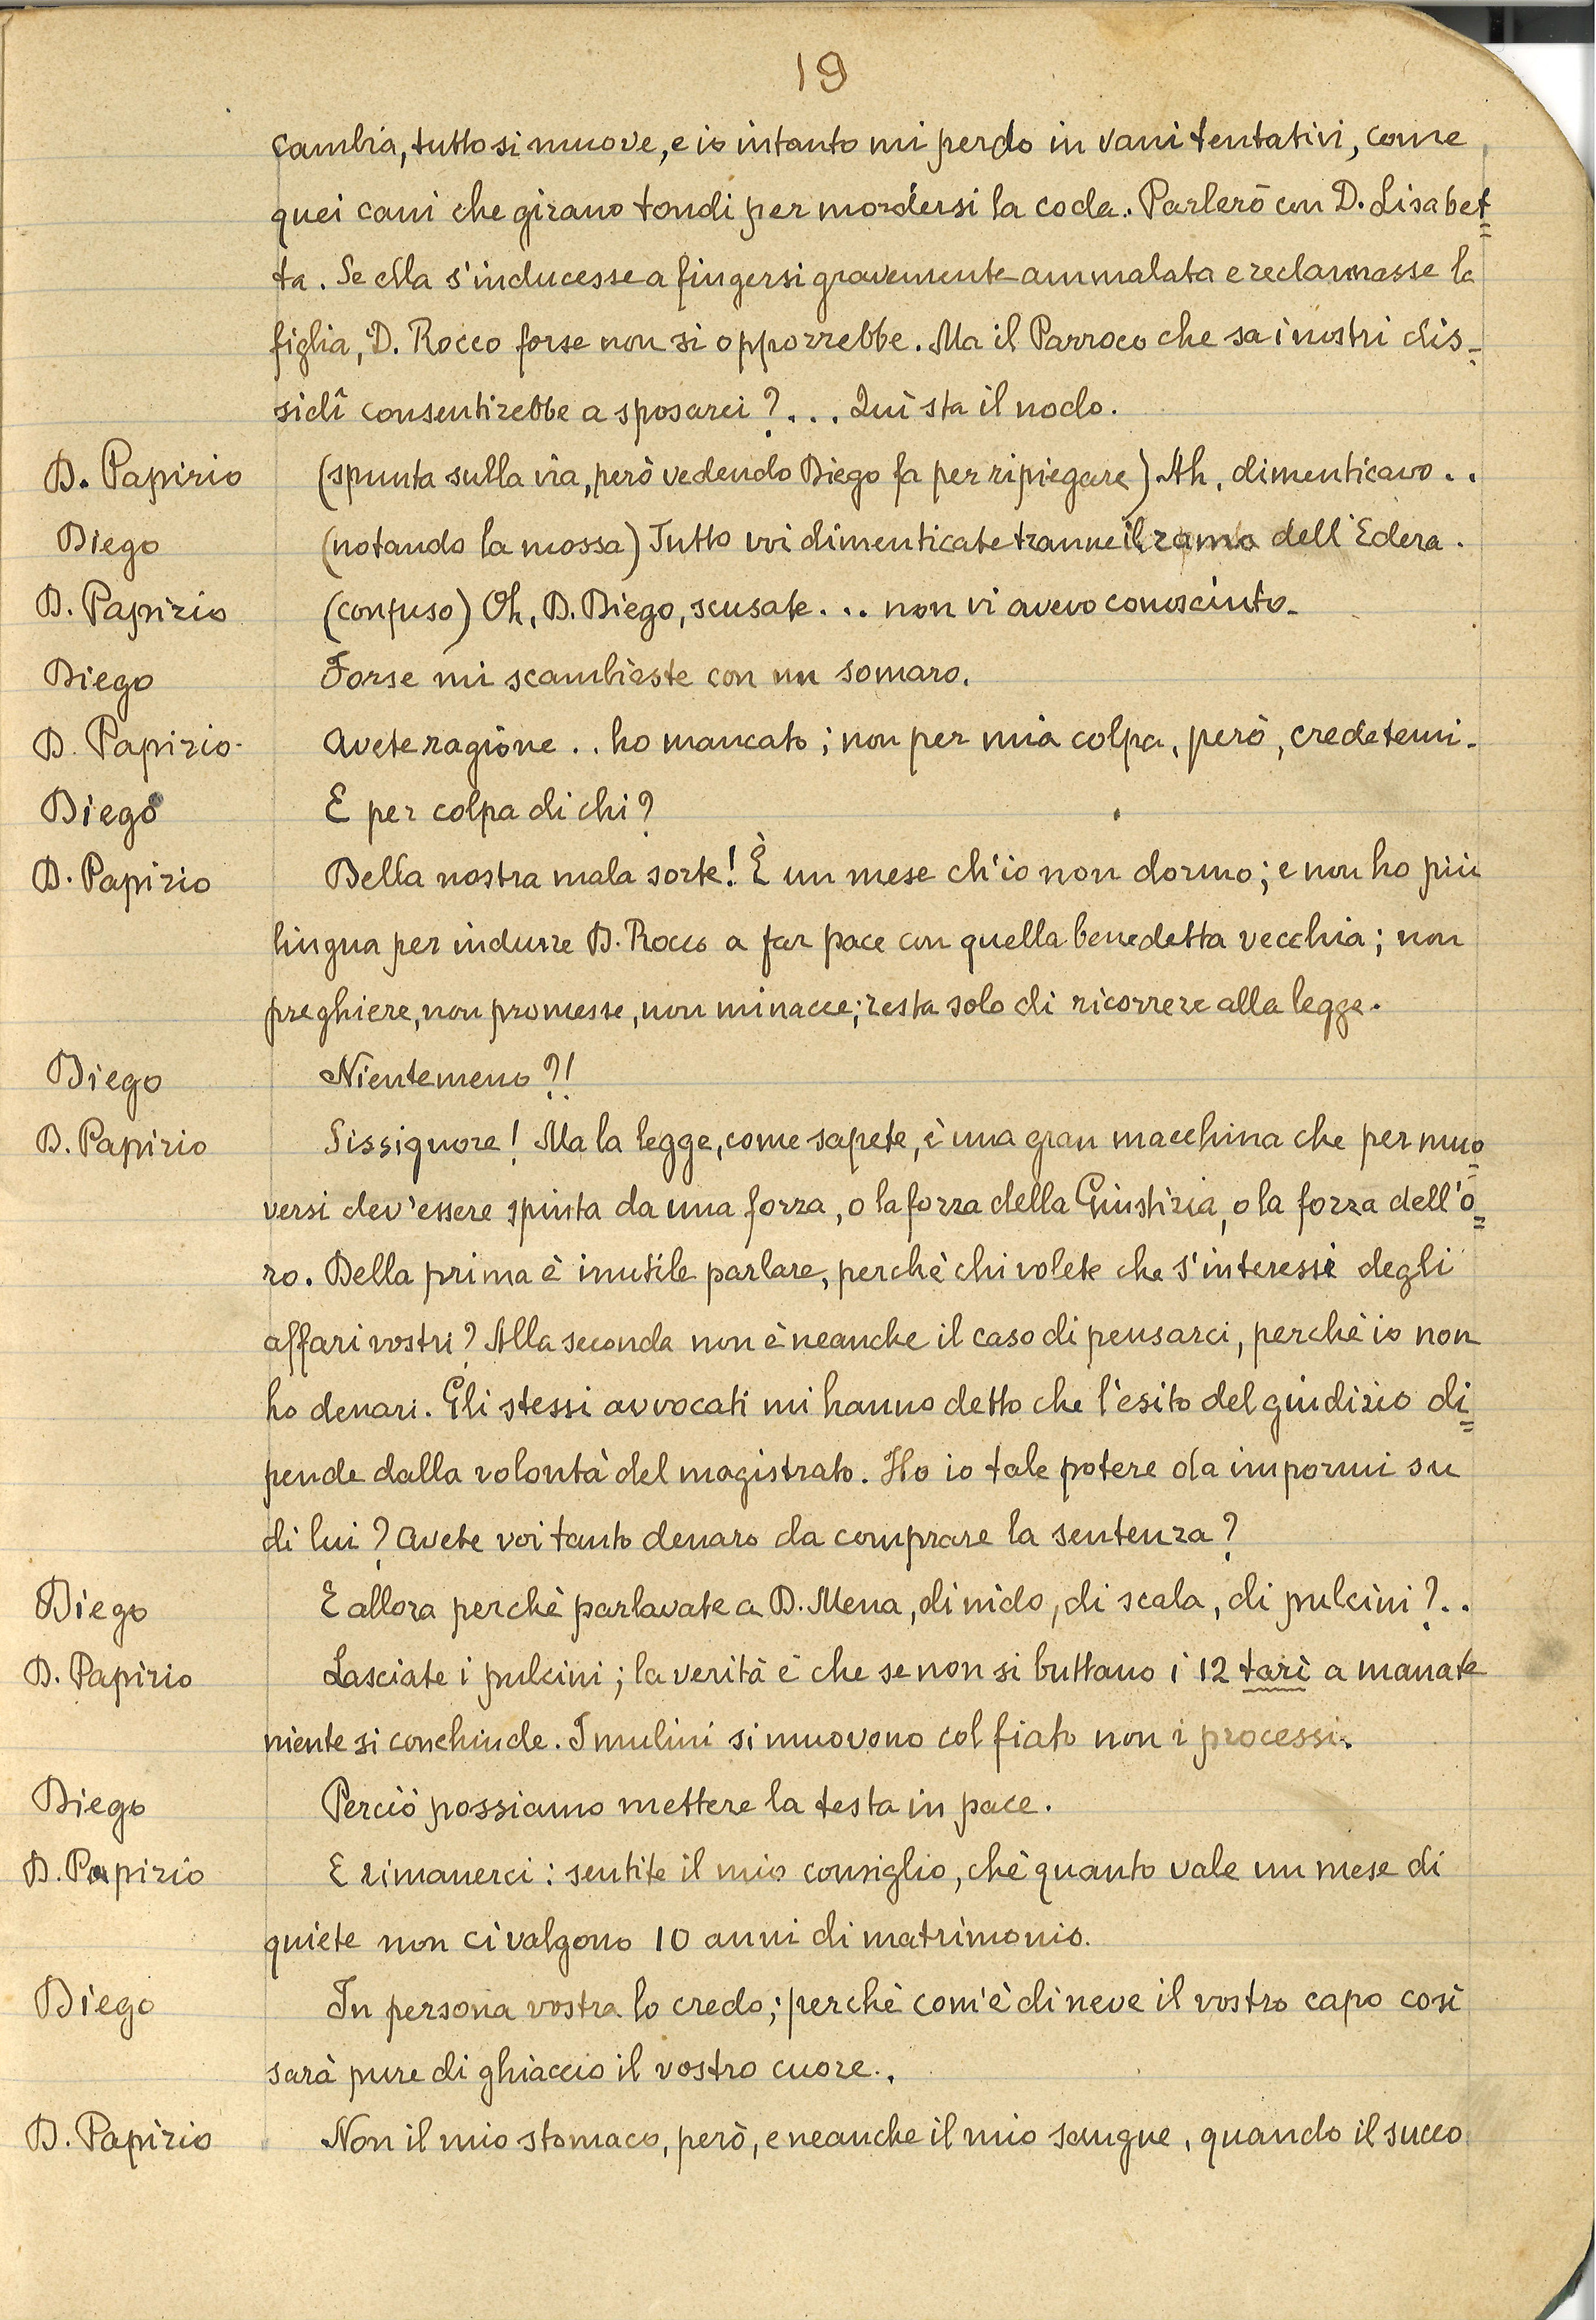 19
cambia, tutto si muove, e io intanto mi perdo in vani tentativi, come
quei cani che girano tondi per mordersi la coda. Parlerò con D. Lisabet=
ta. Se ella s'inducesse a fingersi gravemente ammalata e reclamasse la
figlia, D. Rocco forse non si opporrebbe. Ma il Parroco che sa i nostri dis=
sidî consentirebbe a sposarci?... Quì sta il nodo.
D. Papirio (spunta sulla via, però vedendo Diego fa per ripiegare) Ah, dimenticavo..
Diego (notando la mossa) Tutto voi dimenticate tranne il ramo dell'Edera.
D. Papirio (confuso) Oh, D. Diego, scusate... non vi avevo conosciuto.
Diego Forse mi scambiaste con un somaro.
D. Papirio. Avete ragione.. ho mancato; non per mia colpa, però, credetemi.
Diego E per colpa di chi?
D. Papirio Della nostra mala sorte! È un mese ch'io non dormo; e non ho più
lingua per indurre D. Rocco a far pace con quella benedetta vecchia; non
preghiere, non promesse, non minacce; resta solo di ricorrere alla legge.
Diego Nientemeno?!
D. Papirio Sissignore! Ma la legge, come sapete, è una gran macchina che per muo=
versi dev'essere spinta da una forza, o la forza della Giustizia, o la forza dell'o=
ro. Della prima è inutile parlare, perchè chi volete che s'interessi degli
affari vostri? Alla seconda non è neanche il caso di pensarci, perchè io non
ho denari. Gli stessi avvocati mi hanno detto che l'esito del giudizio di=
pende dalla volontà del magistrato. Ho io tale potere da impormi su
di lui? Avete voi tanto denaro da comprare la sentenza?
Diego E allora perchè parlavate a D. Mena, di nido, di scala, di pulcini?..
D. Papirio Lasciate i pulcini; la verità è che se non si buttano i 12 tarì a manate
niente si conchiude. I mulini si muovono col fiato non i processi.
Diego Perciò possiamo mettere la testa in pace.
D. Papirio E rimanerci: sentite il mio consiglio, chè quanto vale un mese di
quiete non ci valgono 10 anni di matrimonio.
Diego In persona vostra lo credo; perchè com'è di neve il vostro capo così
sarà pure di ghiaccio il vostro cuore..
D. Papirio Non il mio stomaco, però, e neanche il mio sangue, quando il succo